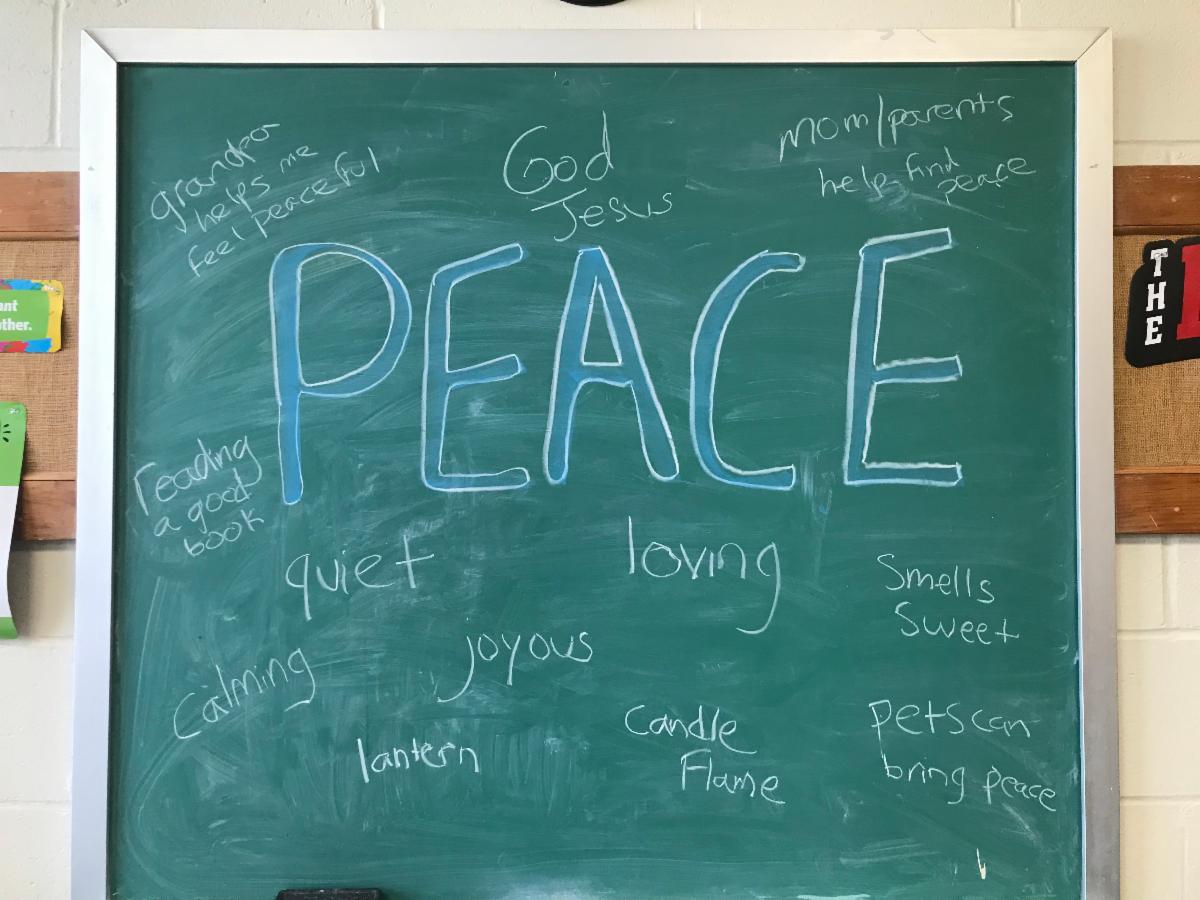 grandpa
helps me
feel peaceful
God
Jesus
mom/parents
help find
peace
PEACE
reading
a good
book
quiet
loving
Smells
Sweet
joyous
calming
lantern
Candle
Flame
pets can
bring peace
ant
other.
THE